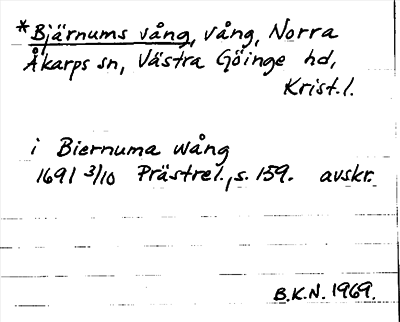 *Bjärnums vång, vång, Norra
Åkarps sn, Västra Göinge hd,
Krist.l.
i Biernuma wång
1691 3/10 Prästrel., s. 159. avskr.
B.K.N. 1969.